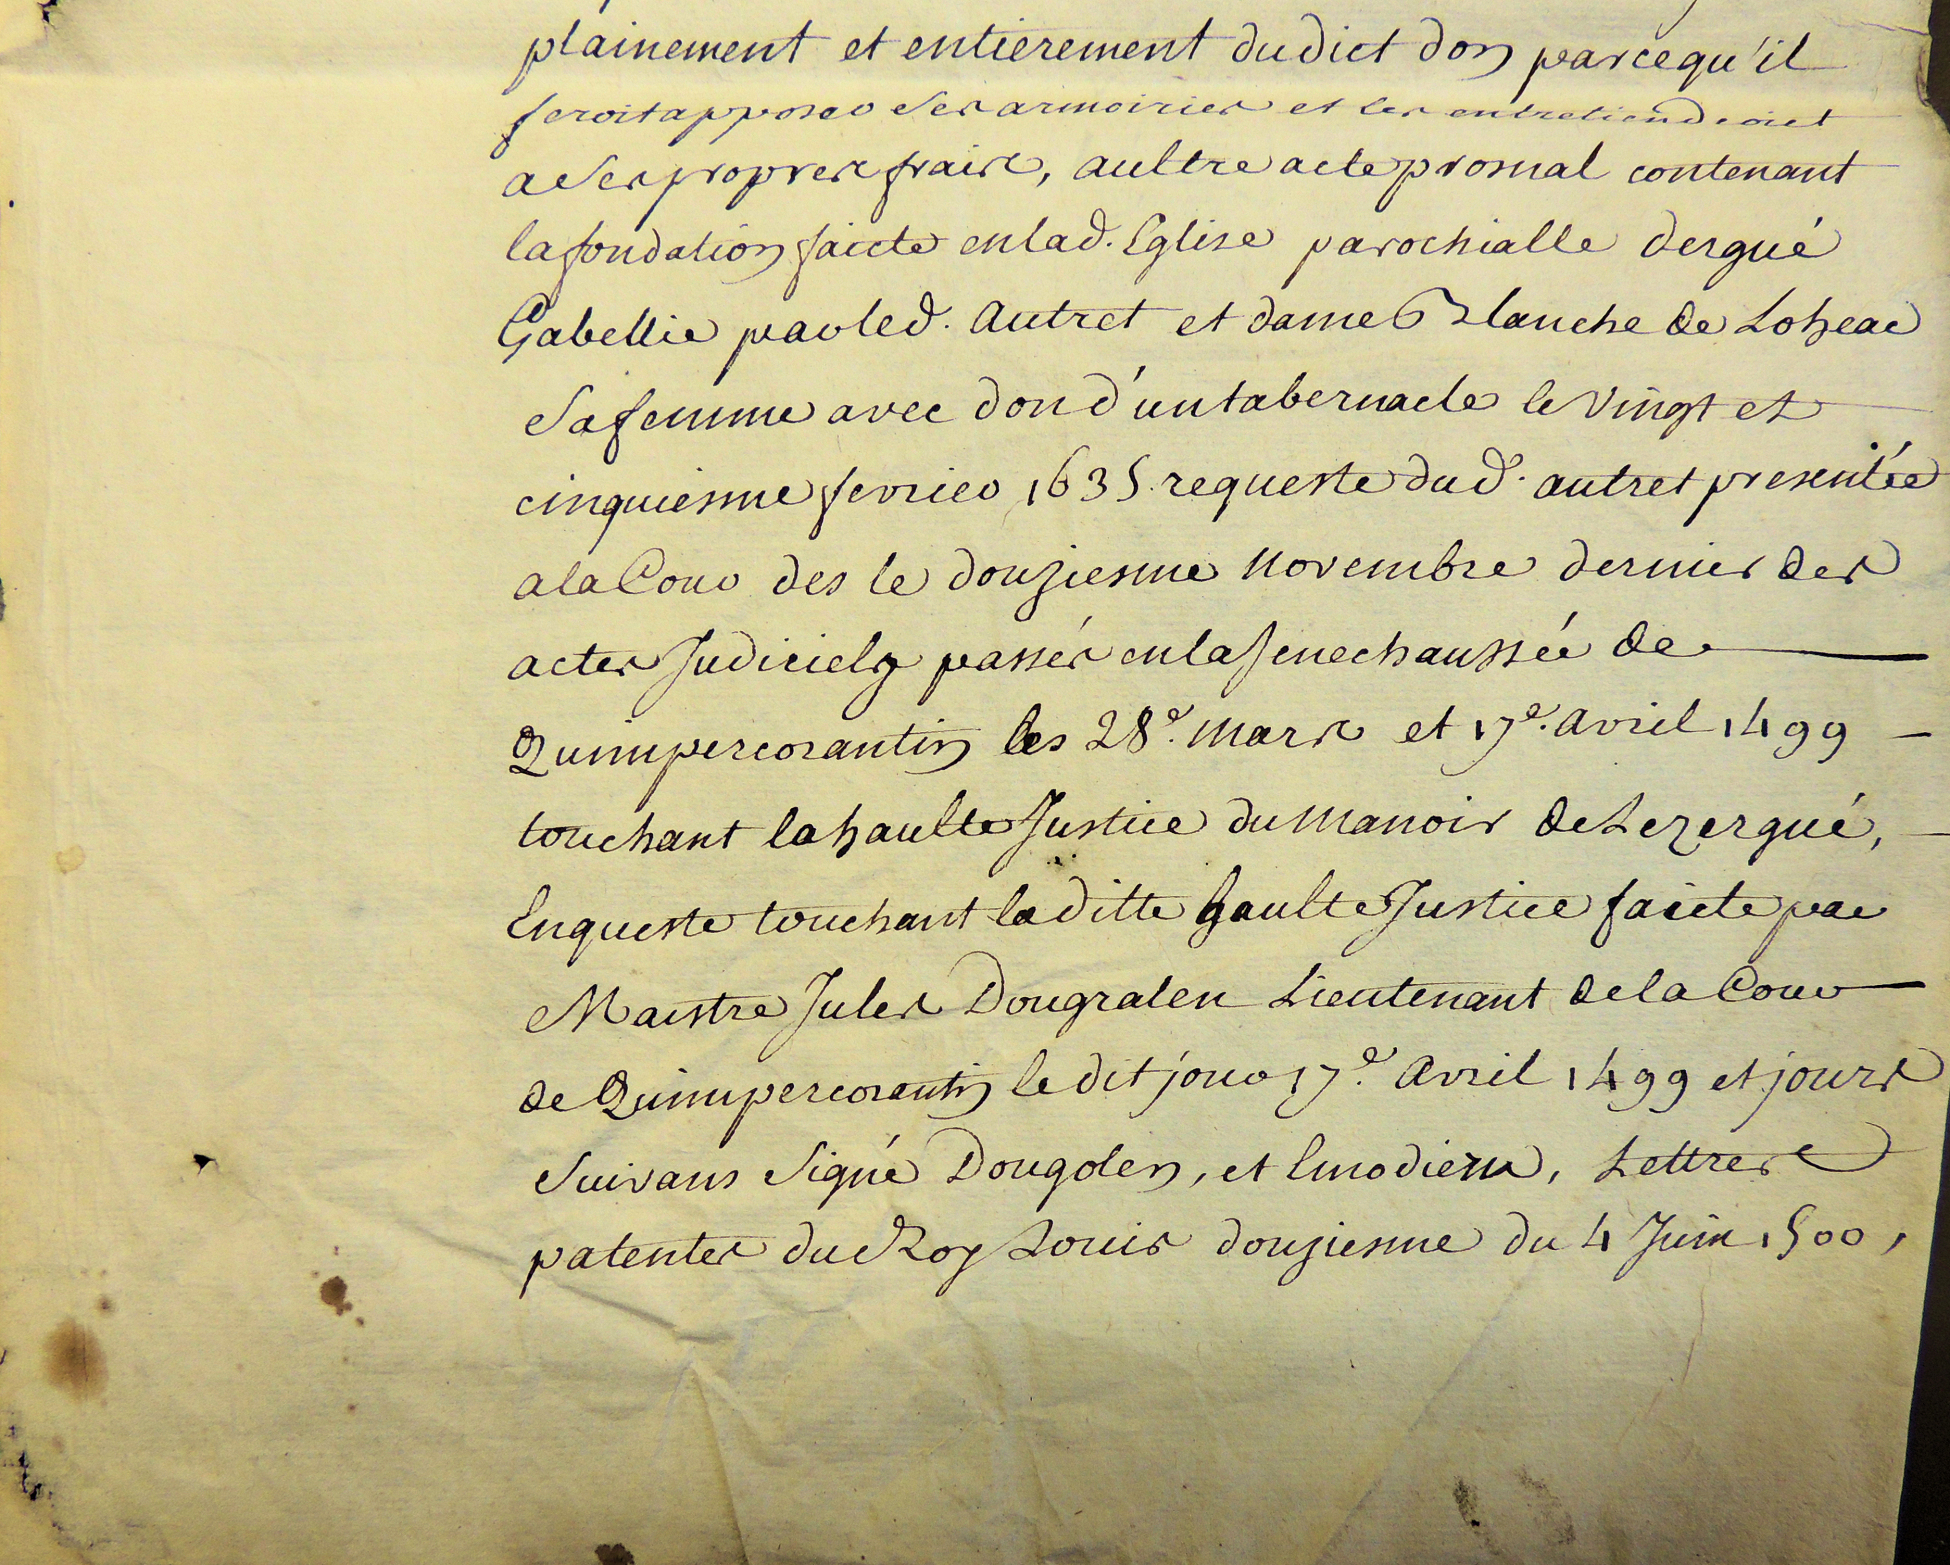 plainement et entierement dudict don parcequ'il
feroit apposer ses armoiries et les entretiendroict
a ses propres frais, aultre acte prosnal contenant
la fondation faicte en lad. Eglise parochialle dergué
Gabellic par led. Autret et dame Blanche de Loheac
sa femme avec don d'un tabernacle le vingt et
cinquiesme fevrier 1635. requeste dud. autret presentée
a la Cour des le douziesme novembre dernier des
actes Judiciels passés en la senechaussée de
Quimpercorantin les 28e. mars et 17e. avril 1499
touchant la haulte Justice du manoir de Lezergué,
Enqueste touchant la ditte haulte Justice faicte par
Maistre Jules Dougralen Lieutenant de la Cour
de Quimpercorantin le dit jour 17e. avril 1499 et jours
suivans signé Dougolen, et Emodiern, Lettres
patentes du Roy Louis douziesme du 4 Juin 1500,